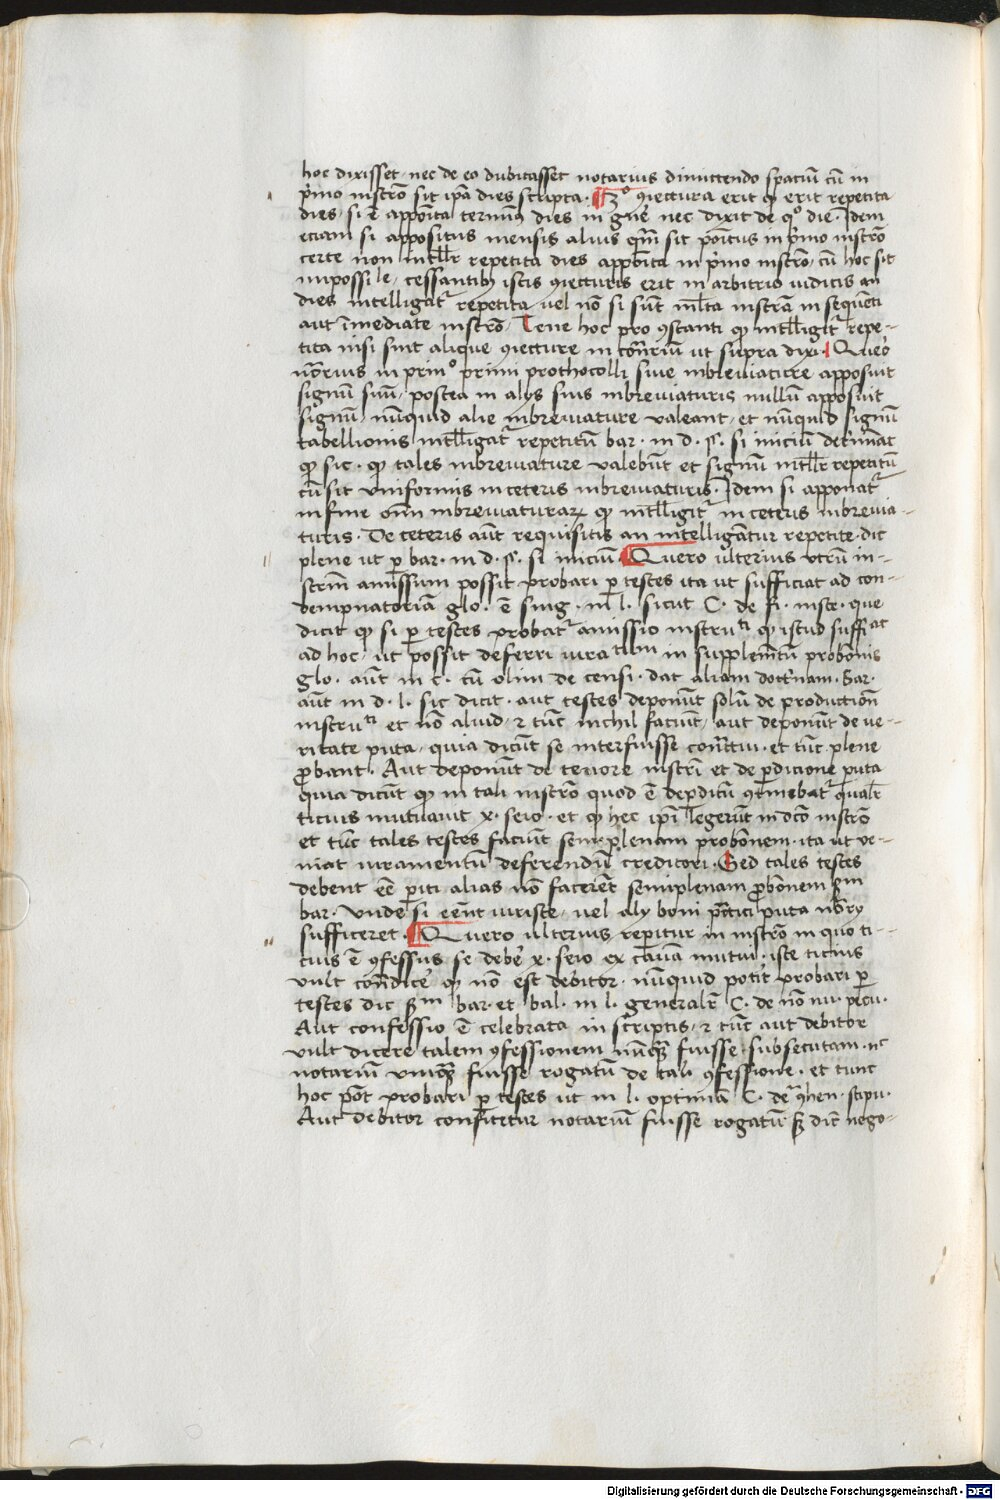 hoc dixisset nec de eo dubitasset notarius dimittendo spaciū cū in
p̄mo inst̄ro sit ip̄a dies scripta · ꝯiectura erit ꝙ erit repetita
dies · si ē appōita terminꝰ dies in gn̄e nec dixit de qº die · Idem
eciam si appositus mensis alius qm̄ sit pōitus in p̄mo inst̄ro
certe non intll̄r repetita dies appōita in p̄mo inst̄ro cū hoc sit
impossi le / cessantibꝫ istis ꝯiecturis erit in arbitrio iudicis an
dies intelligat᷑ repetita vel nō si sūt ml̄ta inst̄ra in sequēti
aut īmediate inst̄ro · Tene hoc pro ꝯstanti ꝙ intll̄igit᷑ repe-
tita nisi sint alique ꝯiecture in cōtr̄iū ut supra dixi · Quero
nōrius in prinº primi prothocolli siue inbreuiature apposuit
signū suū / postea in alijs suis inbreuiaturis nullū apposuit
signū / nūquid alie inbreuiature valeant / et nūquid signū
tabellionis intll̄igat᷑ repetitū bar · in d · §. si iniciū det̄minat
ꝙ sic · ꝙ tales inbreuiature valebūt et signū intll̄r repetitū
cū sit vniformis in ceteris inbreuiaturis · Idem si apponat᷑
in fine oīm inbreuiaturaꝝ ꝙ intll̄igit᷑ in ceteris inbreuia-
turis · De ceteris aūt requisitis an intelligant̄ur repetite · dic
plene ut ꝑ bar · in d · §. si iniciū · Quero ulterius vtrū in-
strm̄ amissum possit probari ꝑ testes ita ut sufficiat ad con-
dempnatoriā glo · ē sing · in l · sicut C · de fi · instr · que
dicit ꝙ si ꝑ testes probat᷑ amissio instruti ꝙ istud suffiat
ad hoc / ut possit deferri iura tum in supplem̄tū probōnis
glo · aūt in c · cū olim de censi · dat aliam doct̄nam · Bar ·
aūt in d · l · sic dicit · aut testes deponūt solū de production̄
instruti et nō aliud / ⁊ tūc nichil faciūt / aut deponūt de ve-
ritate puta / quia dicūt se interfuisse cōn̄ctui · et tūc plene
ꝓbant · Aut deponūt de tenore inst̄ri et de ꝑdicione puta
quia dicūt ꝙ in tali inst̄ro quod ē deꝑditū ꝯtinebat᷑ qualr̄
ticius mutuauit x · seio · et ꝙ hec ip̄i legerūt in dc̄o inst̄ro
et tūc tales testes faciūt semiplenam probōnem · ita ut ve-
niat iuramentū deferendū creditori · Sed tales testes
debent eē ꝑiti alias nō facerēt semiplenam ꝓbōnem scd̄m
bar · Vnde si eēnt iuriste / vel alij boni pͣctici puta nōrij
sufficeret · Quero ulterius reperitur in inst̄ro in quo ti-
cius ē ꝯfessus se debē x · seio ex causa mutui · iste ticius
vult cōt̄dice᷑ ꝙ nō est debitor · nūquid poti᷑t probari ꝑ
testes dic scd̄m bar · et bal · in l · generalr̄ C · de nō nu · pecu ·
Aut confessio ē celebrata in scriptis / ⁊ tūc aut debitor
vult dicere talem ꝯfessionem nūqꝫ fuisse subsecutam · nc
notariū vnqꝫ fuisse rogatū de tali ꝯfessione · et tunc
hoc pōt probari ꝑ testes ut in l · optimā C · de ꝯthen · stipu ·
Aut debitor confitetur notariū fuisse rogatū sꝫ dicit nego-
Digitalisierung gefördert durch die Deutsche Forschungsgemeinschaft - DFG